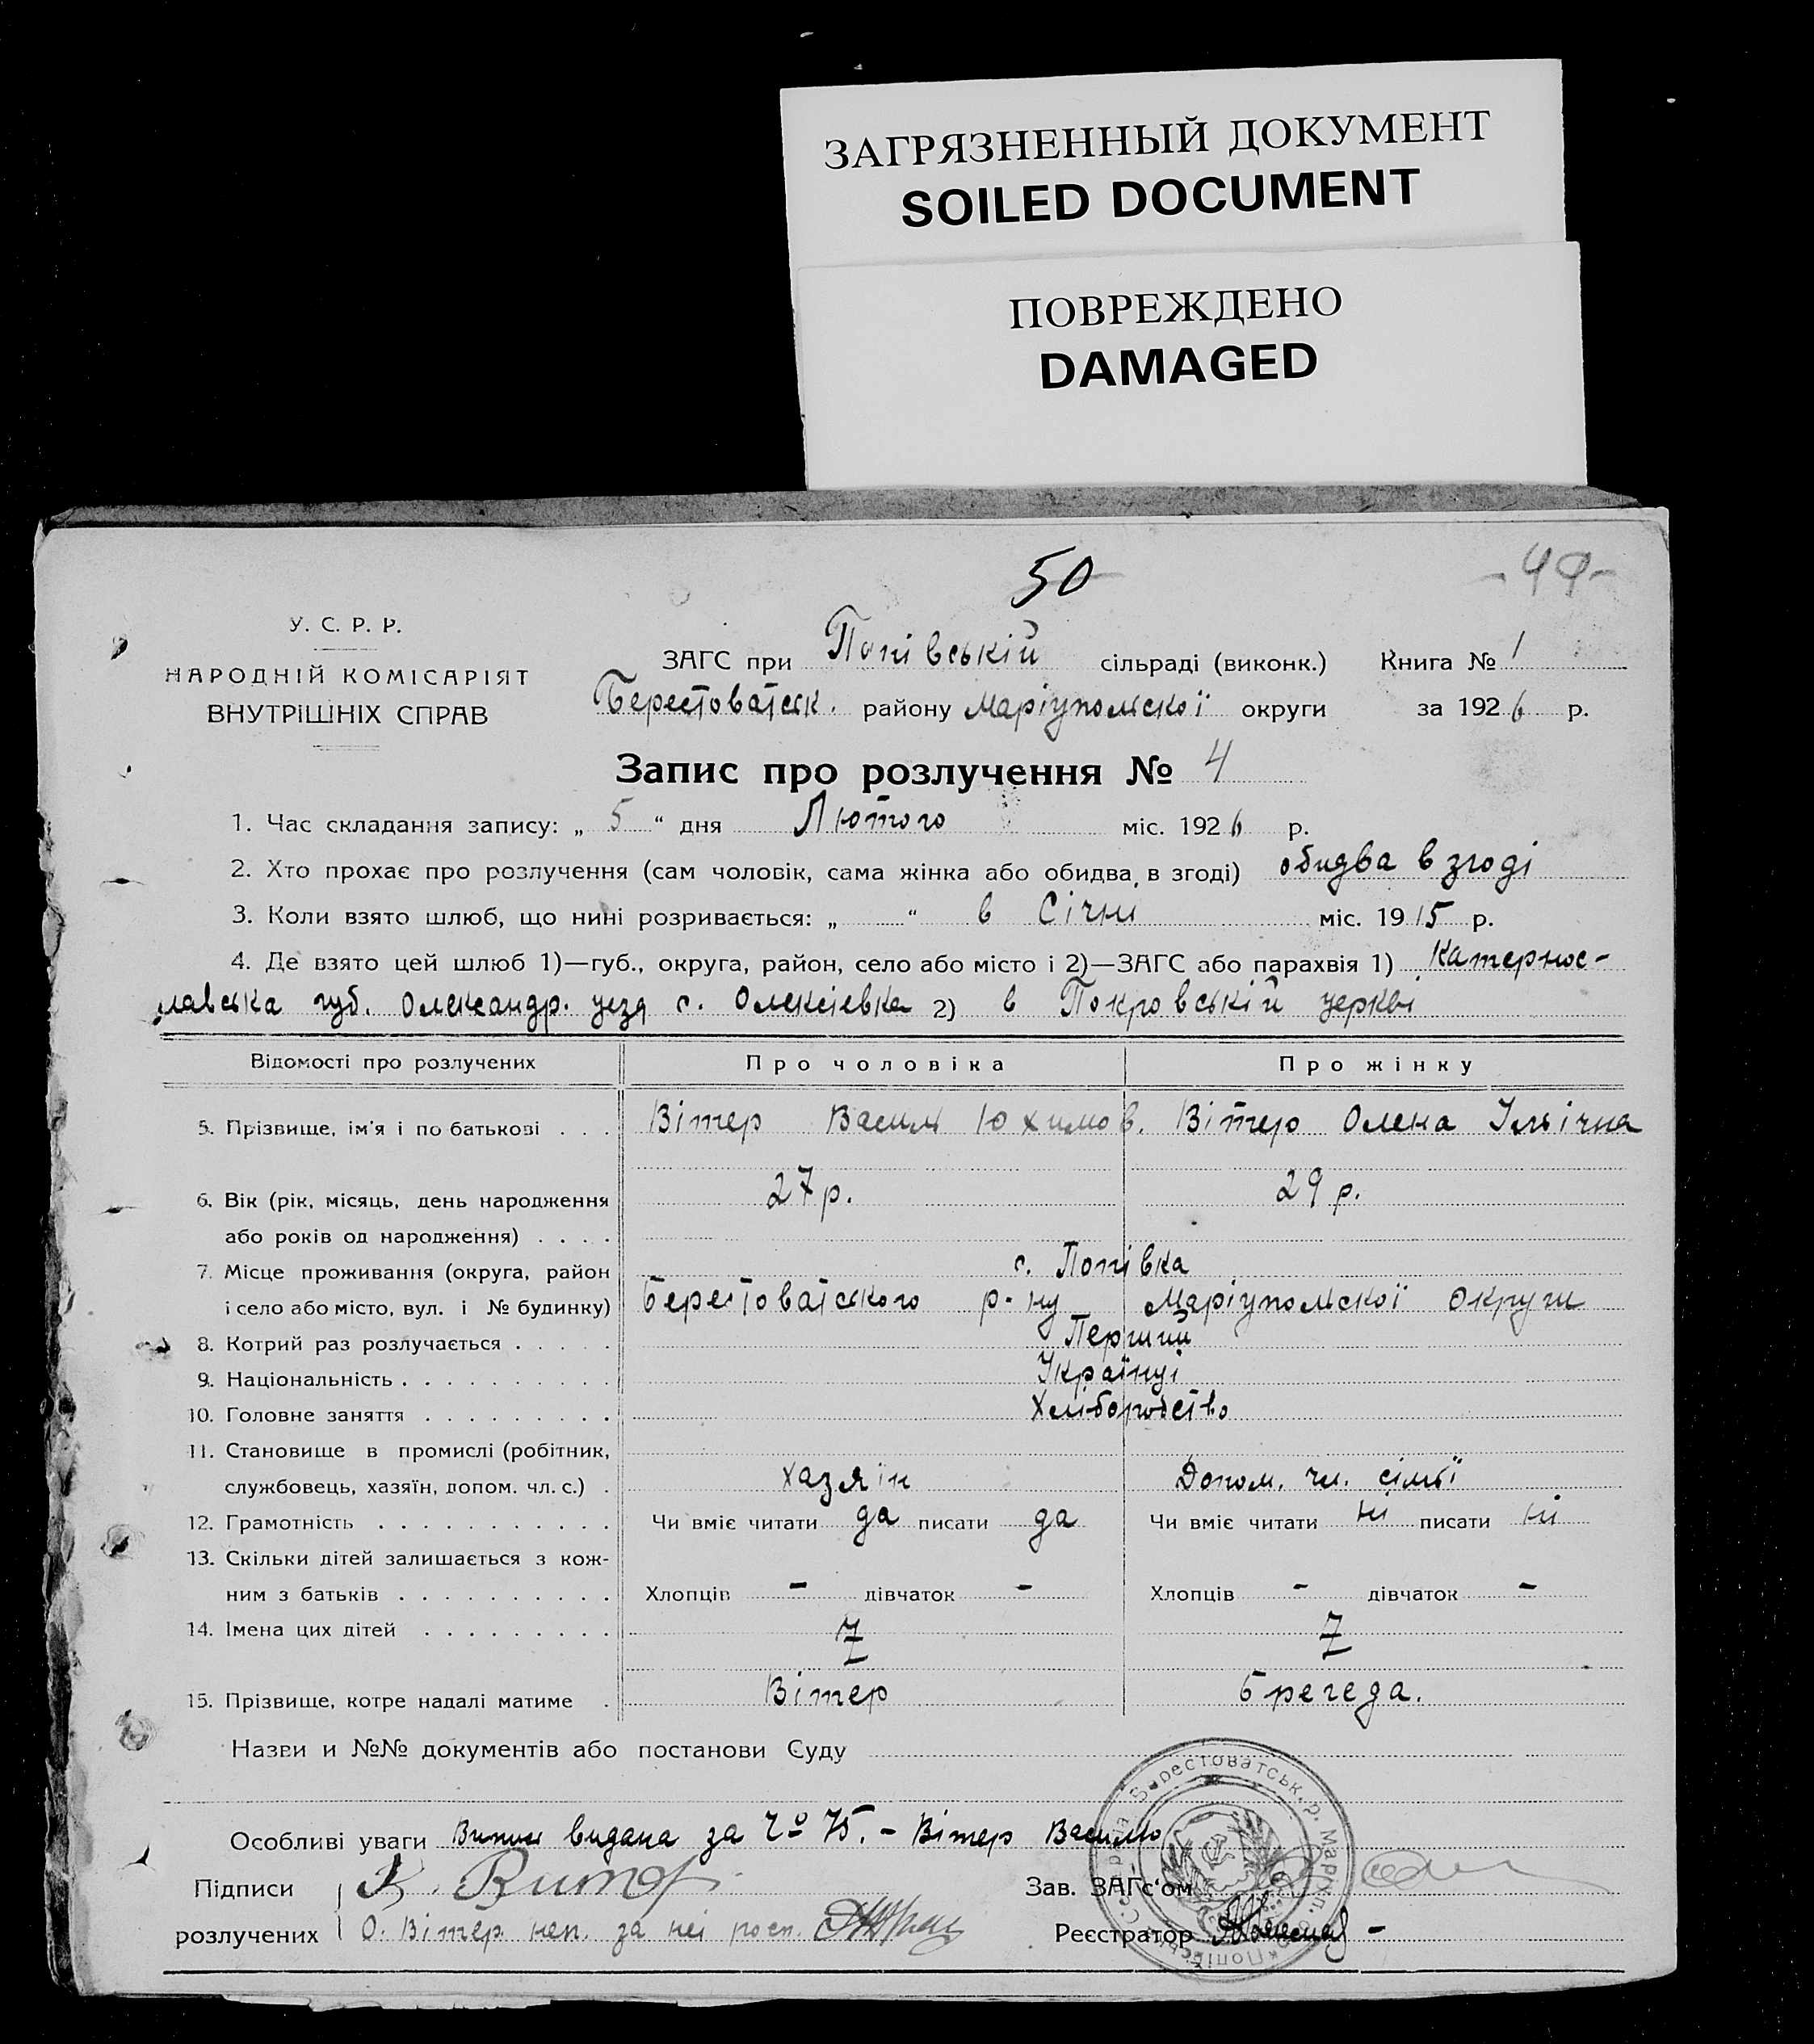 ЗАГРЯЗНЕННЫЙ ДОКУМЕНТ
SOILED DOCUMENT
ПОВРЕЖДЕНО
DAMAGED
50
У. С. Р. Р.
НАРОДНІЙ КОМІСАРІЯТ
ВНУТРІШНІХ СПРАВ
ЗАГС при Попівській сільраді (виконк.) Книга № 1
Берестоватськ. району Маріупольскої округи за 1926 р.
Запис про розлучення № 4
1. Час складання запису: „ 5 “ дня Лютого міс. 1926 р.
2. Хто прохає про розлучення (сам чоловік, сама жінка або обидва в згоді) обидва в згоді
3. Коли взято шлюб, що нині розривається: „ “ в Січні міс. 1915 р.
4. Де взято цей шлюб 1)—губ., округа, район, село або місто і 2)—ЗАГС або парахвія 1) Катернос-
лавська губ. Олександр. уезд с. Олексієвка 2) в Покровській церкві
Відомості про розлучених Про чоловіка Про жінку
5. Прізвище, ім'я і по батькові . . . Вітер Василь Юхимов. Вітер Олена Ільічна
6. Вік (рік, місяць, день народження 27 р. 29 р.
або років од народження) . . . .
7. Місце проживання (округа, район с. Попівка
і село або місто, вул. і № будинку) Берестоватського р-ну Маріупольскої Округи
8. Котрий раз розлучається . . . . . Перший
9. Національність . . . . . . . . . . Українці
10. Головне заняття . . . . . . . . . Хліборобство
11. Становище в промислі (робітник,
службовець, хазяїн, допом. чл. с.) . хазяїн Допом. чл. сімьї
12. Грамотність . . . . . . . . . . . Чи вміє читати да писати да Чи вміє читати ні писати ні
13. Скільки дітей залишається з кож-
ним з батьків . . . . . . . . . . Хлопців - дівчаток - Хлопців - дівчаток -
14. Імена цих дітей . . . . . . . . .
15. Прізвище, котре надалі матиме . Вітер Брегеда.
Назви и №№ документів або постанови Суду
Особливі уваги видана за 75. - Вітер Василю
Підписи
розлучених О. Вітер неп. за неї росп.
Зав. ЗАГс'ом
Реєстратор
Берестоватськ. р. Маріуп.